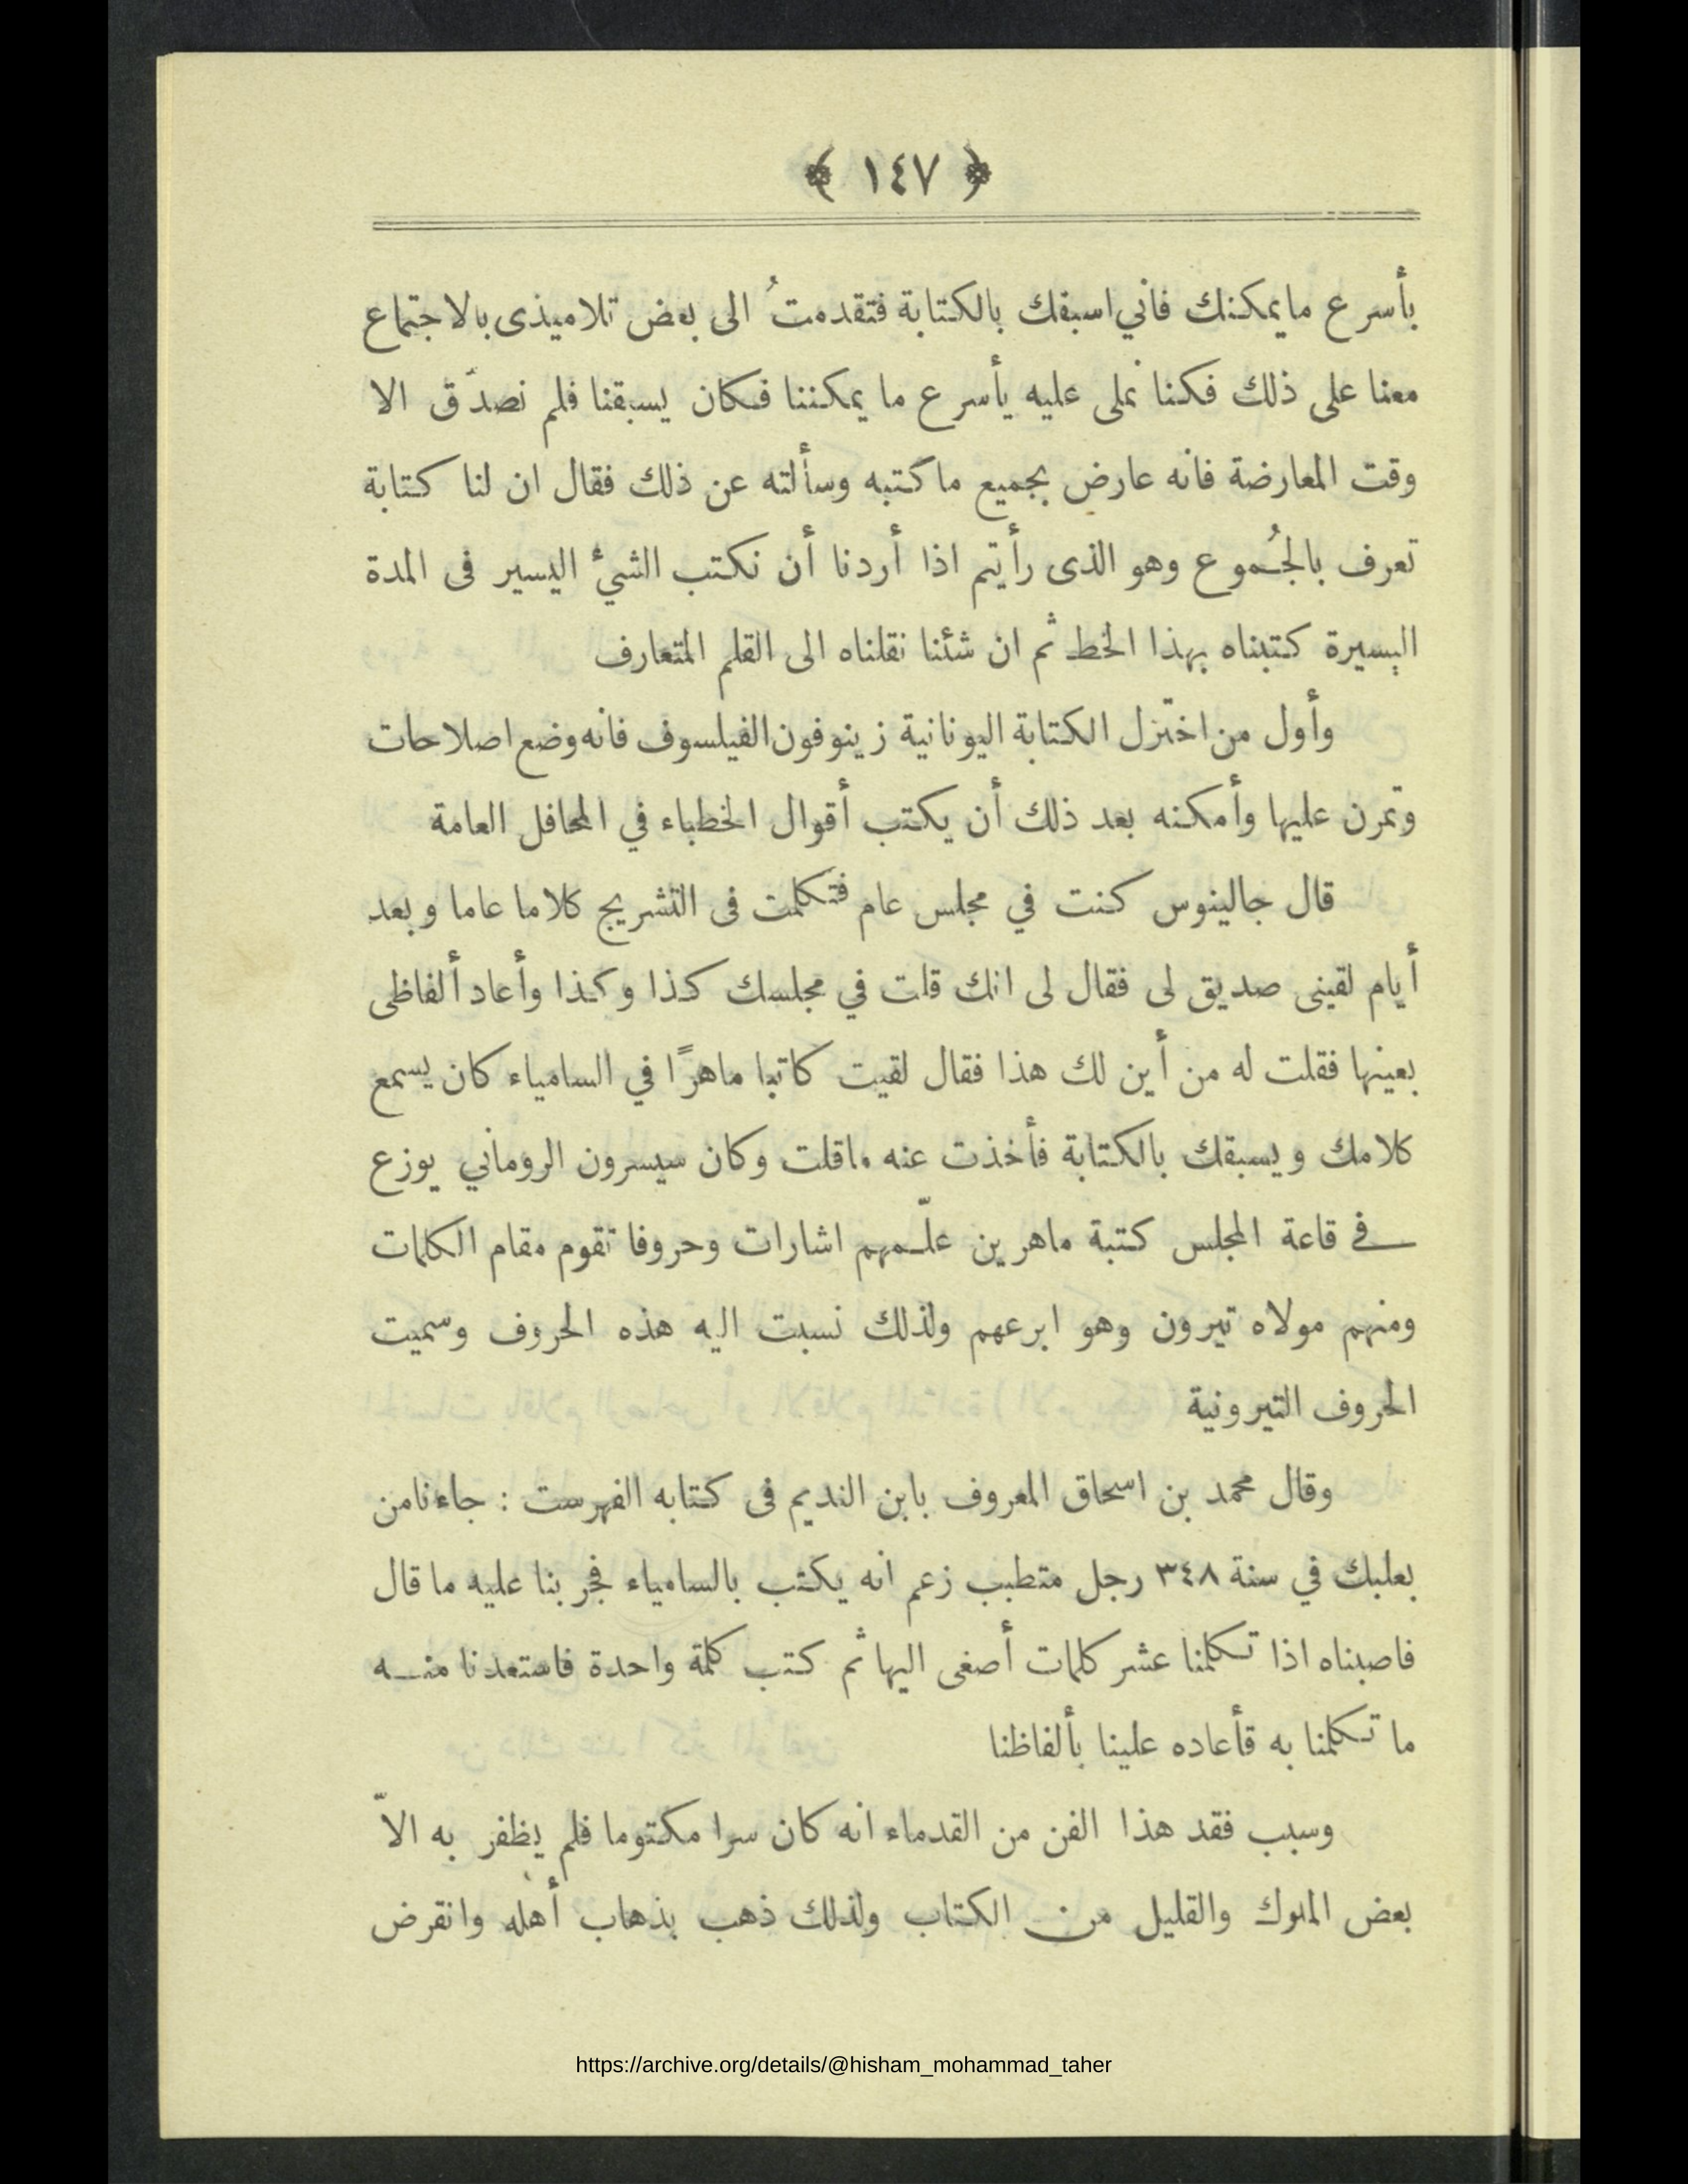 ﴿ ١٤٧ ﴾
بأسرع مايمكنك فاني اسبقك بالكتابة فتقدمتُ الى بعض تلاميذى بالاجتماع
معنا على ذلك فكنا نملى عليه يأسرع ما يمكننا فكان يسبقنا فلم نصدّق الا
وقت المعارضة فانه عارض بجميع ماكتبه وسألته عن ذلك فقال ان لنا كتابة
تعرف بالجُموع وهو الذى رأيتم اذا أردنا أن نكتب الشيْ اليسير فى المدة
اليسيرة كتبناه بهذا الخط ثم ان شئنا نقلناه الى القلم المتعارف
وأول من اختزل الكتابة اليونانية زينوفون الفيلسوف فانه وضع اصلاحات
وتمرن عليها وأمكنه بعد ذلك أن يكتب أقوال الخطباء في المحافل العامة
قال جالينوس كنت في مجلس عام فتكلمت فى التشريح كلاما عاما وبعد
أيام لقينى صديق لى فقال لى انك قلت في مجلسك كذا وكذا وأعاد ألفاظى
بعينها فقلت له من أين لك هذا فقال لقيت كاتبا ماهرًا في السامياء كان يسمع
كلامك ويسبقك بالكتابة فأخذت عنه ماقلت وكان سيسرون الروماني يوزع
في قاعة المجلس كتبة ماهرين علّمهم اشارات وحروفا تقوم مقام الكلمات
ومنهم مولاه تيرون وهو ابرعهم ولذلك نسبت اليه هذه الحروف وسميت
الحروف التيرونية
وقال محمد بن اسحاق المعروف بابن النديم فى كتابه الفهرست : جاءنا من
بعلبك في سنة ٣٤٨ رجل متطبب زعم انه يكتب بالسامياء فجربنا عليه ما قال
فاصبناه اذا تكلمنا عشر كلمات أصغى اليها ثم كتب كلمة واحدة فاستعدنا منه
ما تكلمنا به قأعاده علينا بألفاظنا
وسبب فقد هذا الفن من القدماء انه كان سرا مكتوما فلم يظفر به الاّ
بعض الملوك والقليل من الكتاب ولذلك ذهب بذهاب أهله وانقرض
https://archive.org/details/@hisham_mohammad_taher